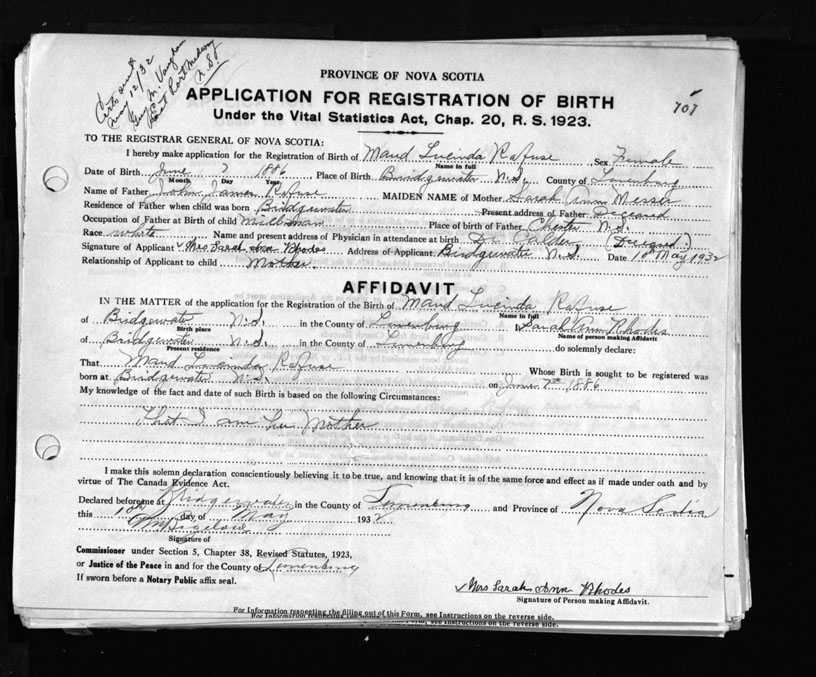 Certs out
May 12/32
Guy M. Vaughan
East Port Medway
N.S.
PROVINCE OF NOVA SCOTIA
APPLICATION FOR REGISTRATION OF BIRTH
707
Under the Vital Statistics Act, Chap. 20, R. S. 1923.
TO THE REGISTRAR GENERAL OF NOVA SCOTIA:
I hereby make application for the Registration of Birth of Maud Lucinda Rafuse Sex Female
Name in full
Date of Birth June 7 1886 Place of Birth Bridgewater N.S. County of Lunenburg
Month Day Year
Name of Father John James Rafuse MAIDEN NAME of Mother Sarah Ann Messer
Residence of Father when child was born Bridgewater Present address of Father Deceased
Occupation of Father at Birth of child millman Place of birth of Father Chester N.S.
Race white Name and present address of Physician in attendance at birth Dr. Calder (Deceased)
Signature of Applicant Mrs Sarah Ann Rhodes Address of Applicant Bridgewater N.S. Date 10 May 1932
Relationship of Applicant to child Mother.
AFFIDAVIT
IN THE MATTER of the application for the Registration of the Birth of Maud Lucinda Rafuse
Name in full
of Bridgewater N.S. in the County of Lunenburg I Sarah Ann Rhodes
Birth place Name of person making Affidavit
of Bridgewater N.S. in the County of Lunenburg do solemnly declare:
Present residence
That Maud Lucinda Rafuse Whose Birth is sought to be registered was
born at Bridgewater N.S. on June 7th 1886
My knowledge of the fact and date of such Birth is based on the following Circumstances:
That I am her Mother
I make this solemn declaration conscientiously believing it to be true, and knowing that it is of the same force and effect as if made under oath and by
virtue of The Canada Evidence Act.
Declared before me at Bridgewater in the County of Lunenburg and Province of Nova Scotia
this 10th day of May 1932
Signature of
Commissioner under Section 5, Chapter 38, Revised Statutes, 1923,
or Justice of the Peace in and for the County of Lunenburg
If sworn before a Notary Public affix seal.
Mrs Sarah Ann Rhodes
Signature of Person making Affidavit.
For Information respecting the filling out of this Form, see Instructions on the reverse side.
For Information respecting the filling out of this Form, see Instructions on the reverse side.